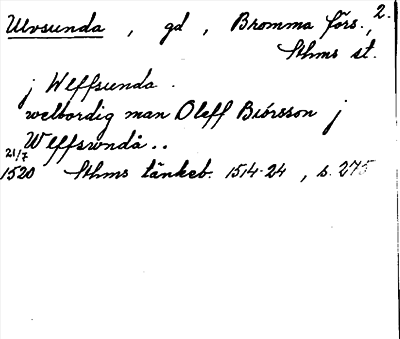 Ulvsunda, gd, Bromma förs., 2.
Sthms st.
j Wlffsunda.
welbordig man Oleff Biörsson j
Wlffswndå..
21/7
1520 Sthms tänkeb. 1514-24, s. 275